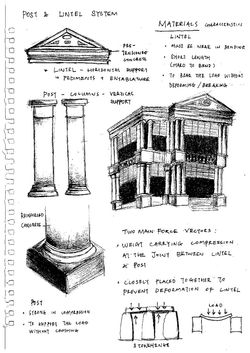 POST & LINTEL SYSTEM
PRE-
TENSIONED
CONCRETE
LINTEL - HORIZONTAL SUPPORT
→ PEDIMENTS & ENTABLATURE
POST - COLUMNS - VERTICAL
SUPPORT
REINFORCED
CONCRETE
POST
• STRONG IN COMPRESSION
• TO SUPPORT THE LOAD
WITHOUT CRUSHING
MATERIALS CHARACTERISTICS
LINTEL
• MUST BE WEAK IN BENDING
LENGTH
(HARD TO BEND)
• TO BEAR THE LOAD WITHOUT
DEFORMING / BREAKING
TWO MAIN FORCE VECTORS:
• WEIGHT CARRYING COMPRESSION
AT THE JOINT BETWEEN LINTEL
& POST
• CLOSELY PLACED TOGETHER TO
PREVENT DEFORMATION OF LINTEL
LOAD
STONEHENGE